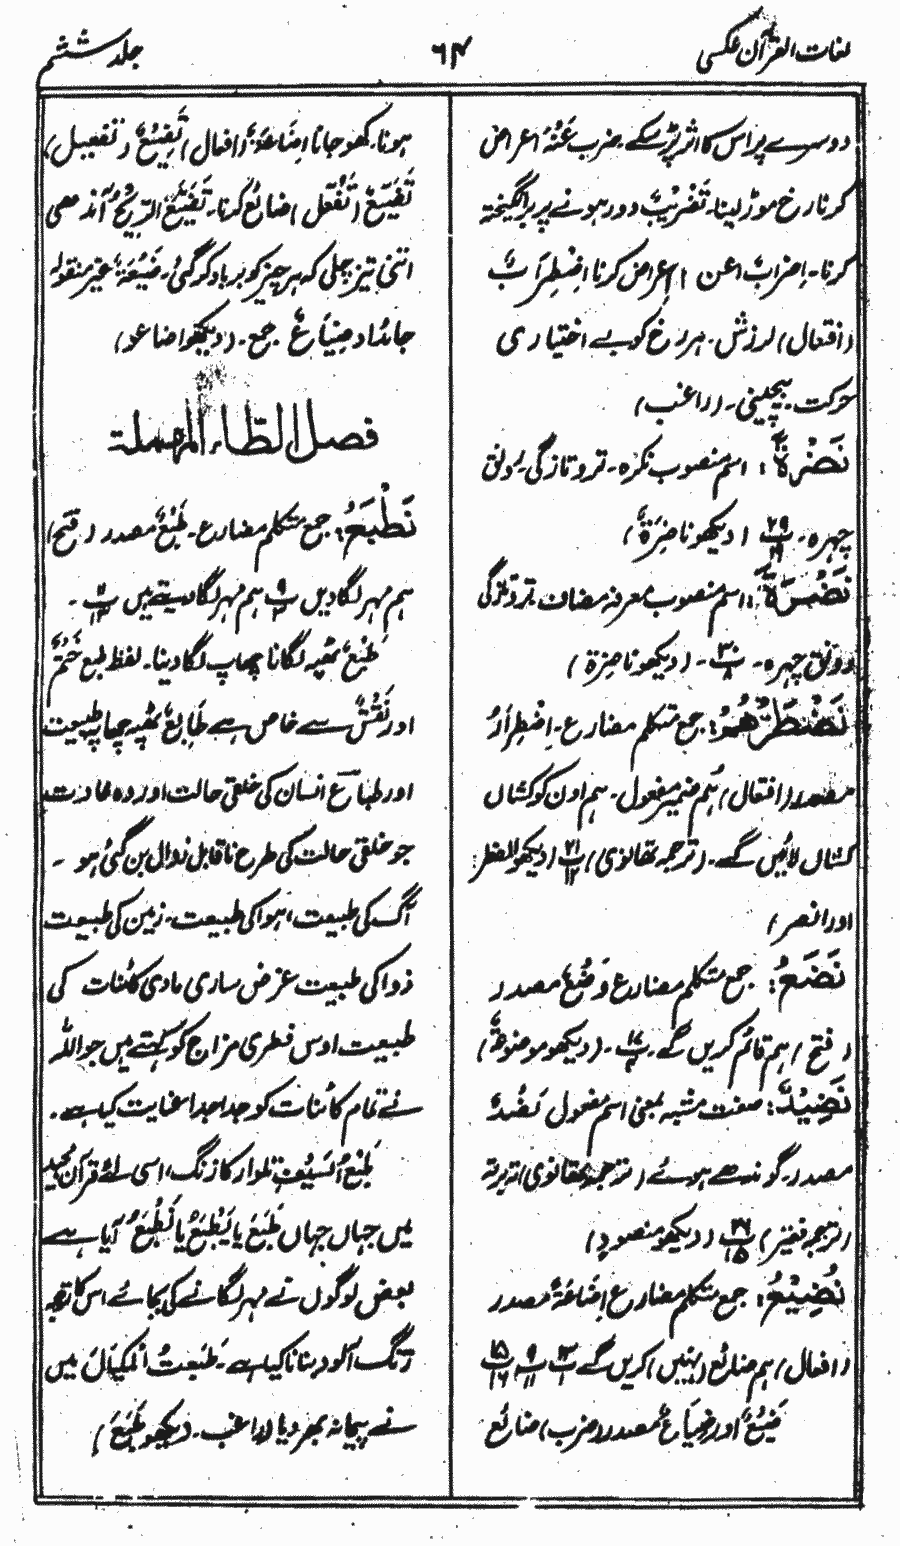 لغات القرآن عکسی
۶۴
جلد ششم
دوسرے پر اس کا اثر پڑسکے۔ ضرب عَنْہُ اعراض
کرنا رخ موڑ لینا۔ تَضْرِیْبٌ دور ہونے پر برانگیختہ
کرنا۔ اِضرابٌ اعن) اعراض کرنا اِضْطِرَابٌ
(افتعال) لرزش۔ ہر رخ کو بے اختیاری
حرکت بیچینی۔ (راغب)
نَضْرَۃً: اسم منصوب نکرہ۔ تروتازگی رونق
چہرہ۔ ۲۹/۱۹ (دیکھو ناضِرَۃٌ)
نَضْرَۃَ: اسم منصوب معرفہ مضاف تروتازگی
رونق چہرہ۔ ۳۰/۸۔ (دیکھو ناضِرَۃ)
نَضْطَرُّھُمْ: جمع متکلم مضارع۔ اِضْطِرَارٌ
مصدر (افتعال) ہُم ضمیر مفعول۔ ہم اون کو کشاں
کشاں لائیں گے۔ (ترجمہ تھانوی) ۲۱/۱۲ (دیکھو الضطر
اور انصر)
نَضَعُ: جمع متکلم مضارع وَضْعٌ مصدر
(فتح) ہم قائم کریں گے۔ ۱۷/۴۔ (دیکھو موضوعۃٌ)
نَضِیْدٌ: صفت مشبہ بمعنی اسم مفعول نَضْدٌ
مصدر۔ گوندھے ہوئے (ترجمہ تھانوی) تہ برتہ
(ترجمہ فقیر) ۲۶/۱۵ (دیکھو منضود)
نُضِیْعُ: جمع متکلم مضارع اِضَاعَۃٌ مصدر
(افعال) ہم ضائع (نہیں) کریں گے ۱۵/۱۶
ضَیْعٌ اور ضِیَاعٌ مصدر (ضرب) ضائع
ہونا۔ کھو جانا اِضَاعَۃٌ (افعال) تَضْیِیْعٌ (تفعیل)
تَضَیُّعٌ (تَفَعُّل) ضائع کرنا۔ تَضَیُّعُ الرِّیْحُ آندھی
اتنی تیز چلی کہ ہر چیز کو برباد کر گئی۔ ضَیْعَۃٌ غیر منقولہ
جائداد ضِیَاعٌ جمع۔ (دیکھو اضاعو)
فصل الظاء المہملۃ
نَطْبَعُ: جمع متکلم مضارع۔ طَبْعٌ مصدر (فتح)
ہم مہر لگادیں ۹/۳ ہم مہر لگا دیتے ہیں ۱۱/۱۳ ۔
طَبْعٌ ٹھپہ لگانا چھاپ لگا دینا۔ لفظ طبع خَتْمٌ
اور نَقْشٌ سے خاص ہے طَابِعٌ ٹھپہ چھاپ طبیعت
اور طباع انسان کی خلقی حالت اور وہ عادت
جو خلقی حالت کی طرح ناقابل زوال بن گئی ہو ۔
آگ کی طبیعت، ہوا کی طبیعت۔ زمین کی طبیعت
دوا کی طبیعت غرض ساری مادی کائنات کی
طبیعت اوس فطری مزاج کو کہتے ہیں جو اللہ
نے تمام کائنات کو جدا جدا عنایت کیا ہے۔
طَبْعُ السَّیْفِ تلوار کا زنگ، اسی لئے قرآن مجید
میں جہاں جہاں طَبَعَ یا یَطْبَعُ یا نَطْبَعُ آیا ہے
بعض لوگوں نے مہر لگانے کی بجائے اس کا ترجمہ
زنگ آلود بنانا کیا ہے۔ طَبَعْتُ الْمِکْیَالَ میں
نے پیمانہ بھر دیا (راغب۔ دیکھو طَبَعَ)